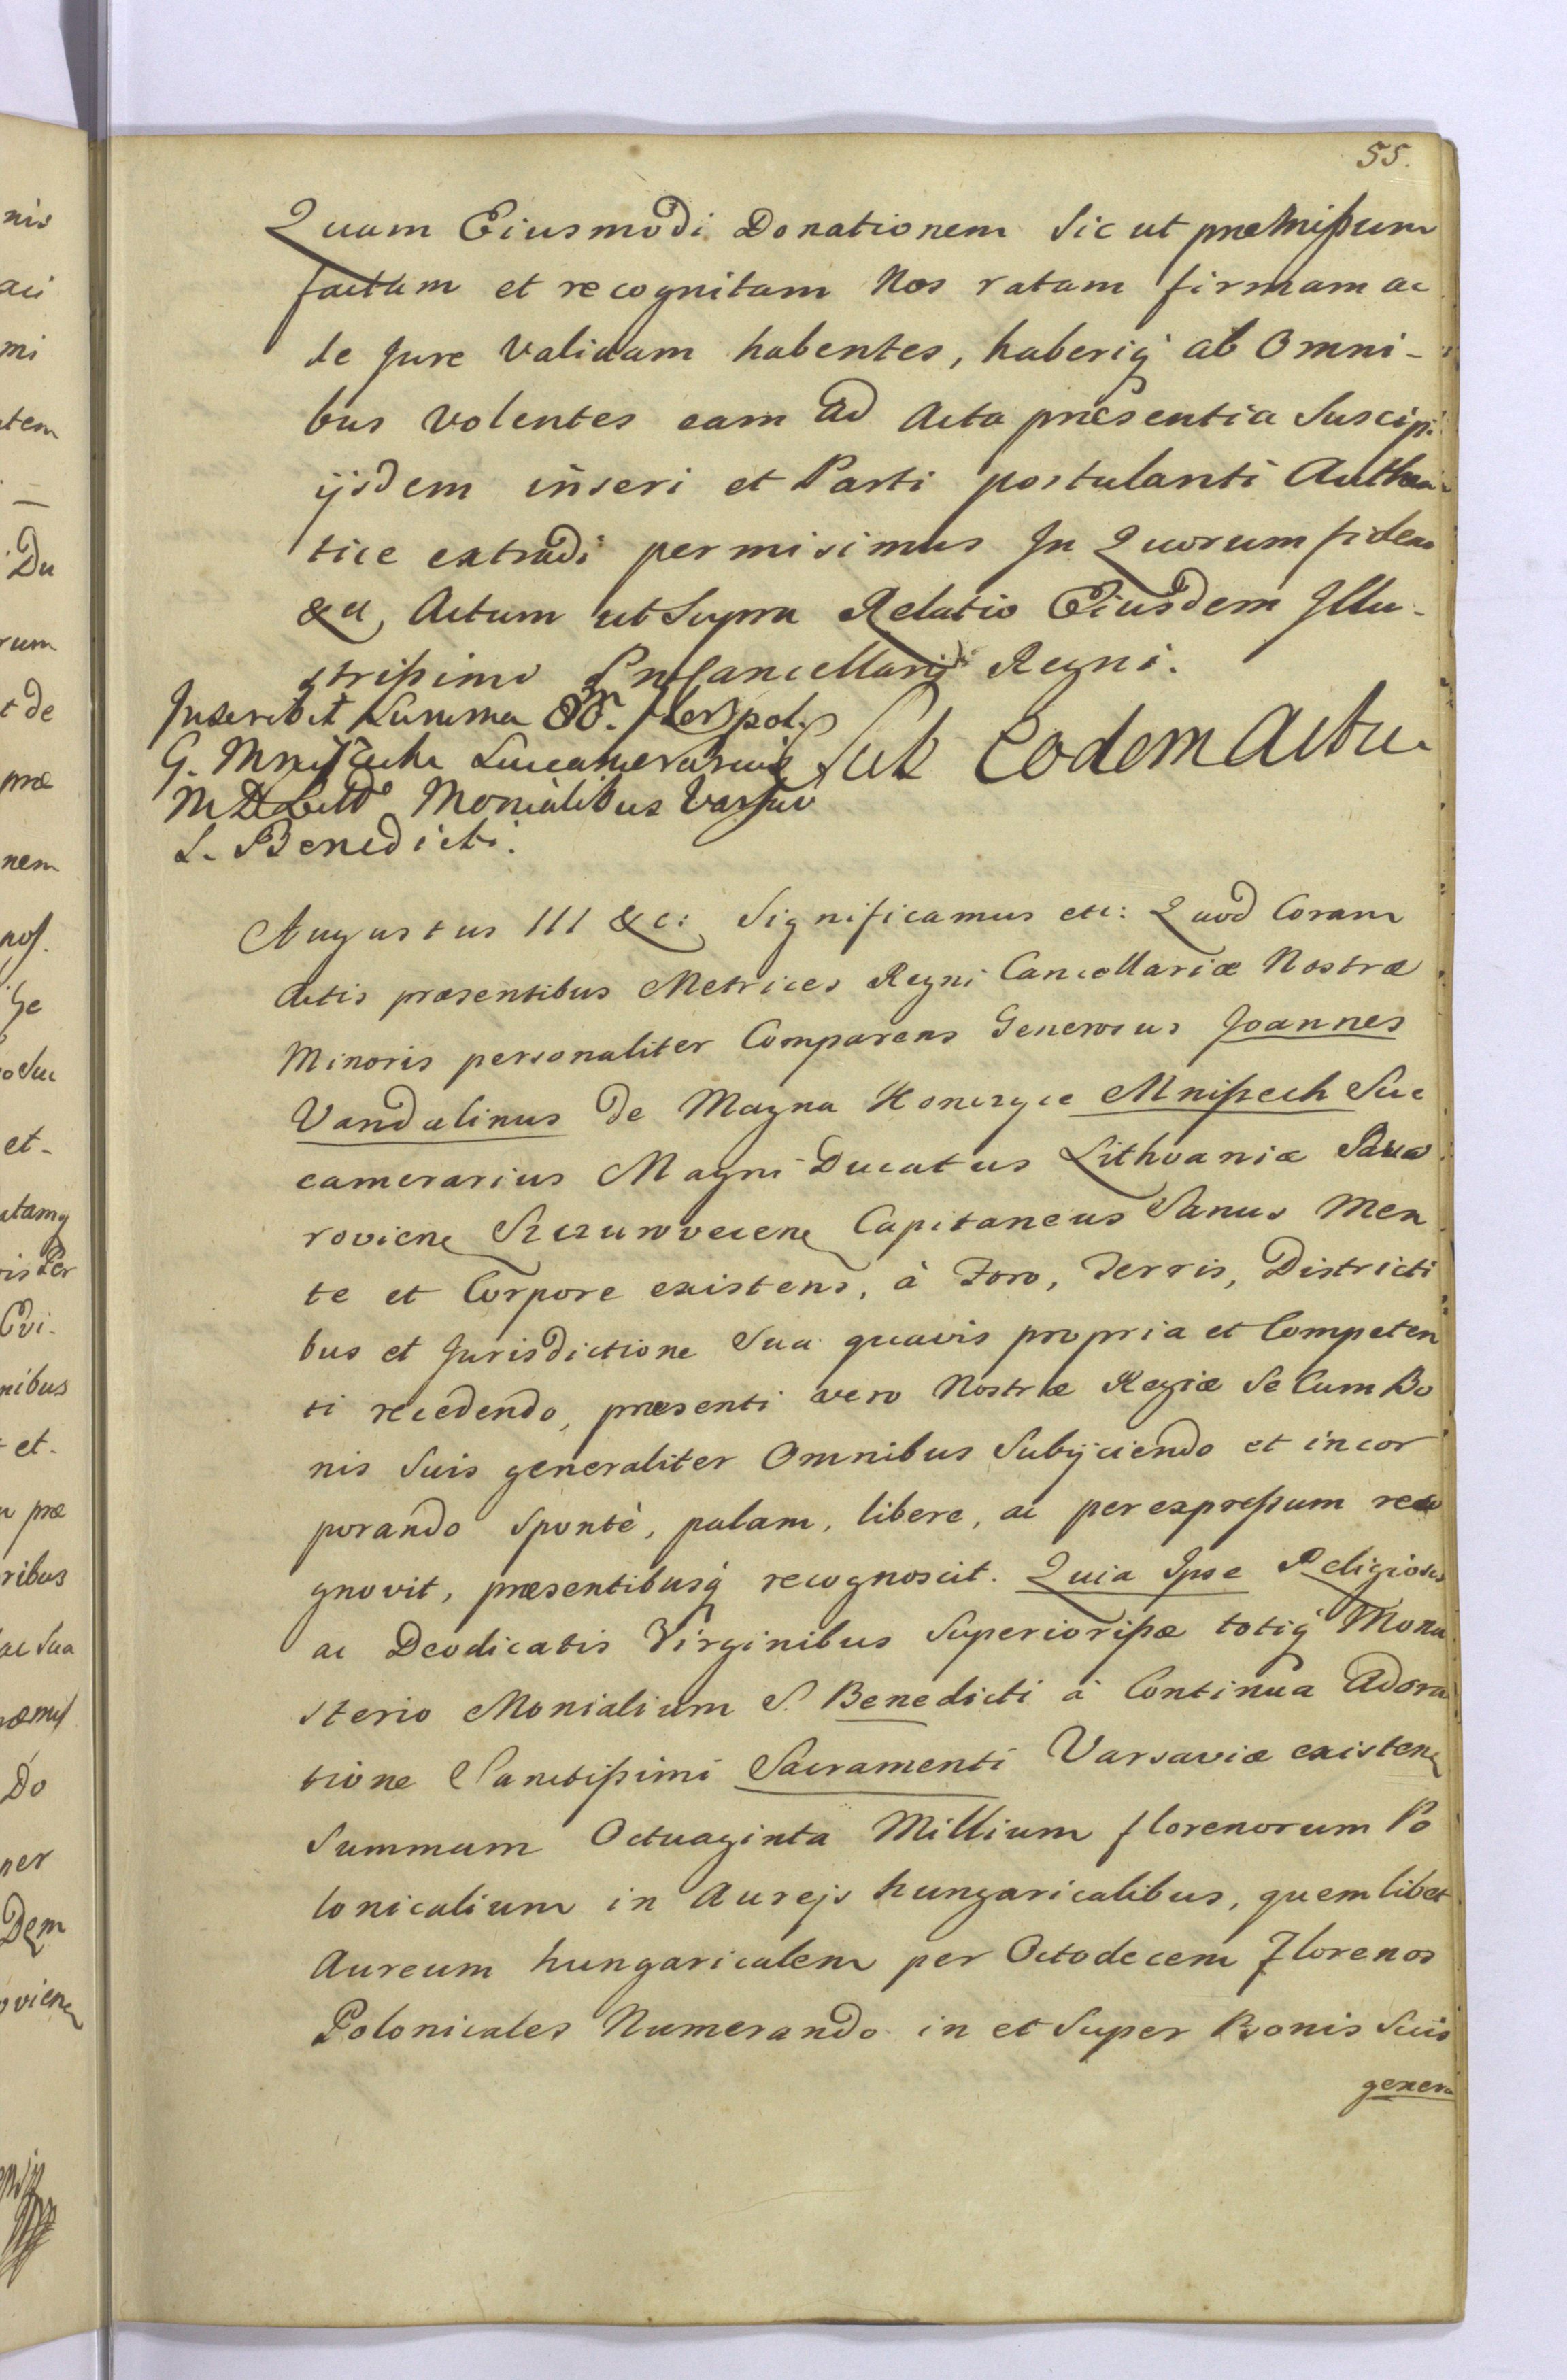 55.
Quam Eiusmodi Donationem Sic ut præmißum
factam et recognitam Nos ratam firmam ac
de Jure Validam habentes, haberiq ab Omni-
bus Volentes eam ad Acta præsentia Suscipi
ijsdem inseri et Parti postulanti Authen
tice extradi permisimus Jn Quorum fidem
&c Actum ut Supra Relatio Eiusdem Jllu-
strißimi Pro Cancellarij Regni.
Jnscribit Summa flor pol.
G. Mniszech Succamerarius
M D Litt Monialibus Varsav
S. Benedicti.
Sub Eodem Actu
Augustus III &c: Significamus etc: Quod Coram
Actis præsentibus Metrices Regni Cancellariæ Nostræ
Minoris personaliter Comparens Generosus Joannes
Vandalinus de Magna Konczyce Mnißech Suc
camerarius Magni Ducatus Lithvaniæ
roviens Szczurovecens Capitaneus Sanus Men
te et Corpore existens, à Foro, Terris, Districti
bus et Jurisdictione Sua quavis propria et Competen
ti recedendo, præsenti vero Nostræ Regiæ Se Cum Bo
nis Suis generaliter Omnibus Subijciendo et incor
porando Spontè, palam, libere, ac per expreßum reco
gnovit, præsentibusq recognoscit. Quia Ipse Religiosis
ac Deodicatis Virginibus Superiorißæ totiq Mona
sterio Monialium S. Benedicti à Continua Adora
tione Sanctißimi Sacramenti Varsaviæ existens
Summam Octuaginta Millium florenorum Po
lonicalium in Aurejs hungaricalibus, quemlibet
Aureum hungaricalem per Octodecem Florenos
Polonicales Numerando in et Super Bonis Suis
genera
nis
aci
mi
tem
Du
rum
t de
præ
nem
nos.
et-
utamq
Evi-
nibus
et-
præ
ribus
ac Sua
Do
ner
Dem
oviens